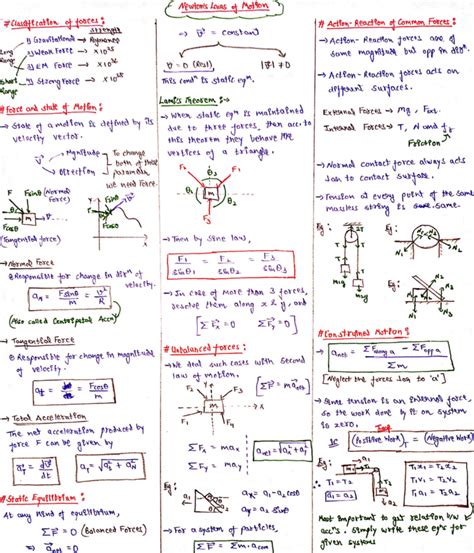 Newton's Laws of Motion
# Classification of forces :
strength
1) Gravitational → Appearance
2) Weak Force → X10²⁵
3) EM Force → X10³⁶
4) Strong Force → X10³⁸
Long Range
Short Range
# Force and state of Motion :
→ State of a motion is defined by its
velocity vector.
Magnitude
Direction
To change
both of these
parameters
we need force.
F
Fsinθ (Normal
Force)
m
Fcosθ
(Tangential force)
→ Normal Force
Responsible for change in dirⁿ of
velocity.
aN = Fsinθ/m = v²/R
(Also called Centripetal Accⁿ)
→ Tangential Force
Responsible for change in magnitude
of velocity.
at = Fcosθ/m
→ Total Acceleration
The net acceleration produced by
force F can be given by
aT = dv/dt
aT = √(at² + aN²)
# Static Equilibrium :
At any kind of equilibrium,
ΣF = 0 (Balanced Forces)
→ anet = 0
→ v = constant
v = 0 (Rest)
|v| ≠ 0
This condⁿ is static eqᵐ.
Lami's Theorem :→
→ When static eqᵐ is maintained
due to three forces, then acc. to
this theorem they behave the
vertices of a triangle.
F1
F2
θ3
θ2
θ1
m
F3
→ Then by sine law,
F1/sinθ1 = F2/sinθ2 = F3/sinθ3
→ In case of more than 3 forces,
resolve them along x & y, and
ΣFx = 0
ΣFy = 0
# Unbalanced forces :
→ We deal such cases with second
law of motion.
ΣF = manet
F1
F2
F3
m
ΣFx = max
ΣFy = may
anet = √(ax² + ay²)
Eg :
ay = a1 sinθ
→ For a system of particles,
# Action-Reaction of Common Forces :
→ Action-Reaction forces are of
same magnitude but opp in dirⁿ.
→ Action-Reaction forces acts on
different surfaces.
External Forces → Mg, Fext.
Internal Forces → T, N and f
Friction
→ Normal contact force always acts
⊥ to contact surface.
→ Tension at every point of the same
massless string is same.
Eg :
T
T
T
T
Mg
N1
N2
Eg :
# Constrained Motion :
→ anet = (ΣFalong a − ΣFopp a)/Σm
[Neglect the forces ⊥ to 'a']
→ Since tension is an internal force,
so the work done by it on system
is zero.
(Positive Work) = (Negative Work)
Eg :
∴ T1 = T2
a1 = a2
T1x1 = T2x2
T1v1 = T2v2
T1a1 = T2a2
Most Important to get relation b/w
accⁿs. Simply write these eqⁿs for
given systems